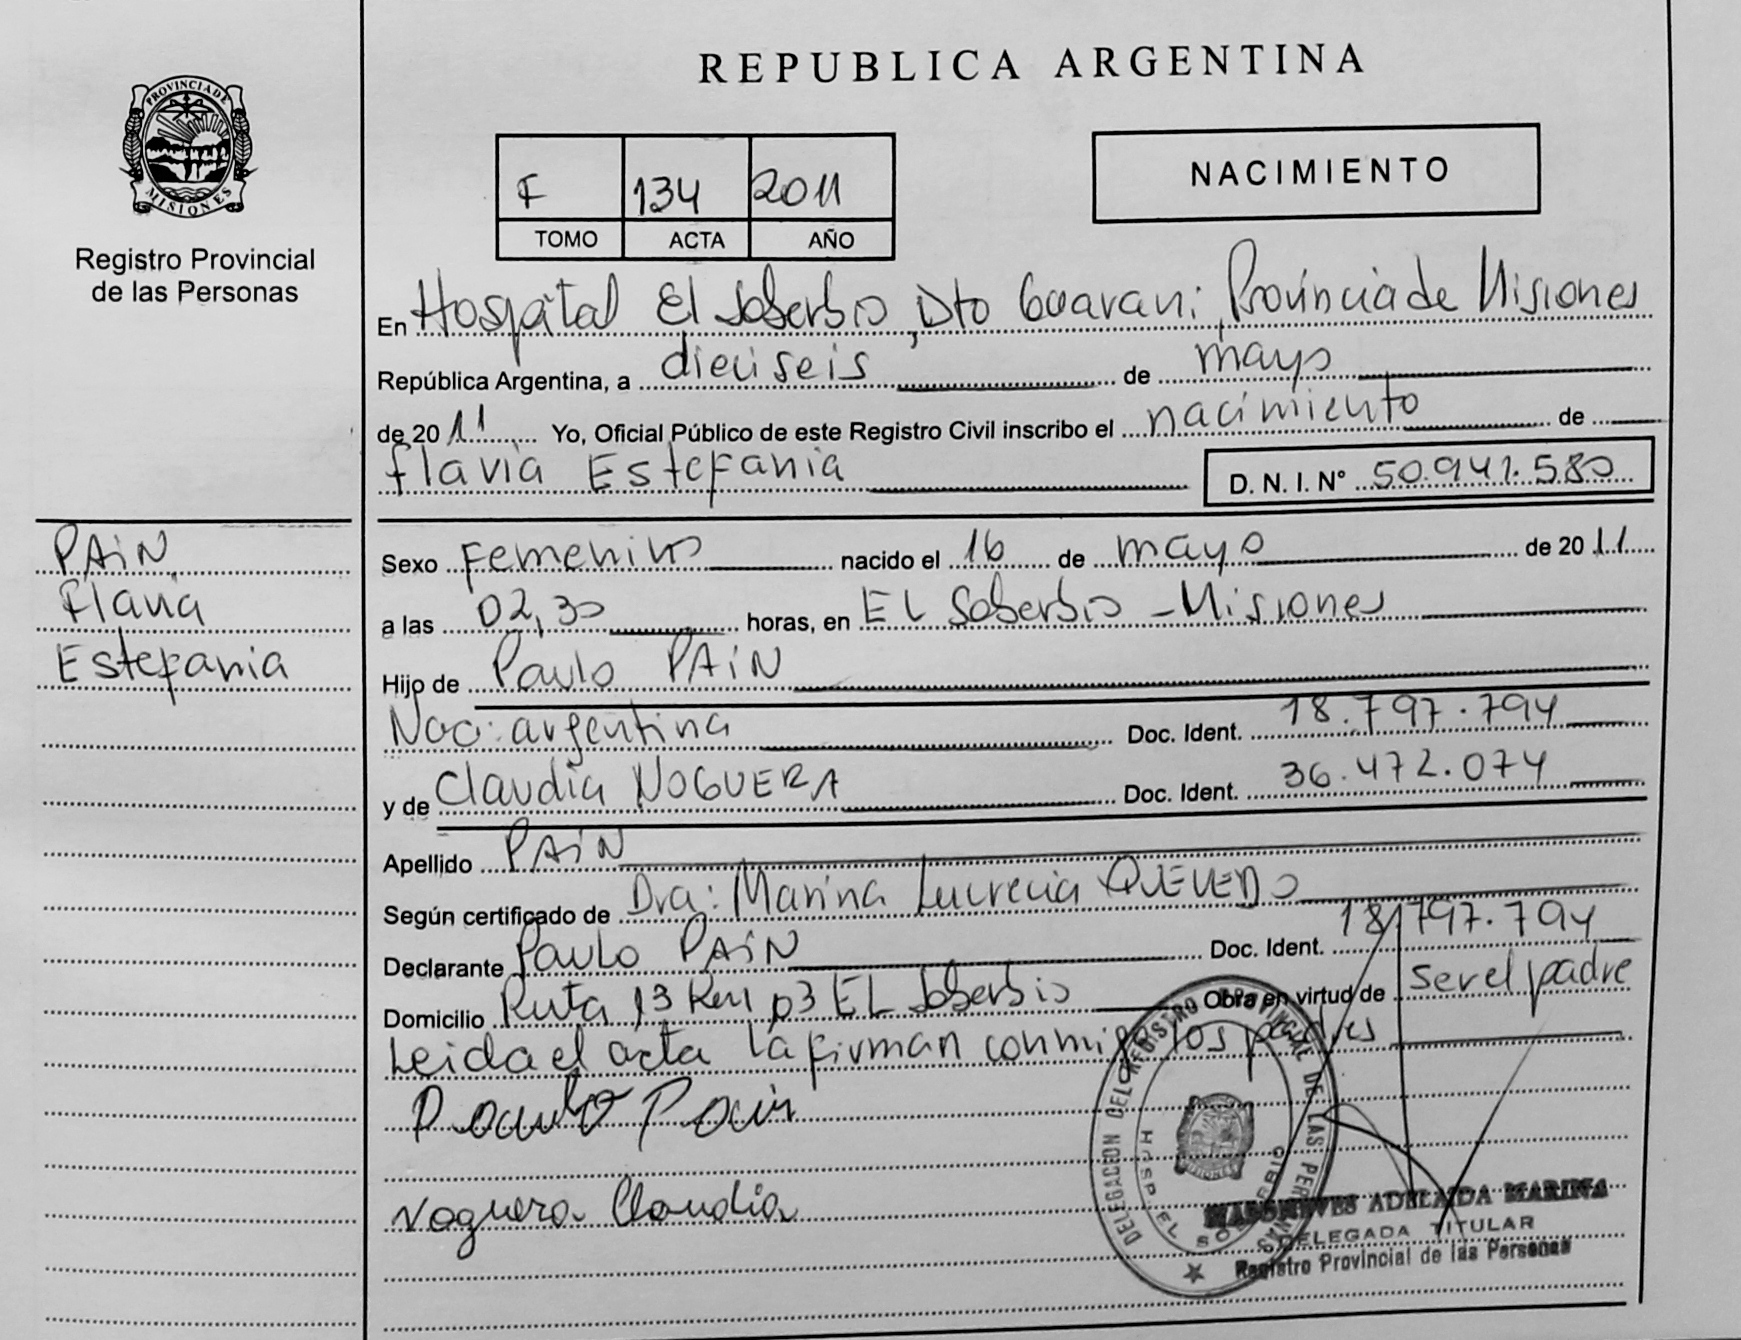 PROVINCIA DE
MISIONES
Registro Provincial
de las Personas
REPUBLICA ARGENTINA
F 134 2011
TOMO ACTA AÑO
NACIMIENTO
En Hospital El Soberbio, Dto Guarani; Provincia de Misiones
República Argentina, a dieciseis de mayo
de 2011 Yo, Oficial Público de este Registro Civil inscribo el nacimiento de
Flavia Estefania D. N. I. N° 50.941.580
PAiN
Flavia
Estefania
Sexo Femenino nacido el 16 de mayo de 2011
a las 02,30 horas, en EL Soberbio - Misiones
Hijo de Paulo PAiN
Nac: argentina Doc. Ident. 18.797.794
y de Claudia NOGUERA Doc. Ident. 36.472.074
Apellido PAiN
Según certificado de Dra: Marina Lucrecia QUEVEDO
Declarante Paulo PAiN Doc. Ident. 18.797.794
Domicilio Ruta 13 Km 03 EL Soberbio Obra en virtud de ser el padre
Leida el acta la firman conmigo los padres
Paulo Pain
Noguera Claudia
DELEGACION DEL REGISTRO PROVINCIAL DE LAS PERSONAS
HOSP. EL SOBERBIO
ADELAIDA MARINA
DELEGADA TITULAR
Registro Provincial de las Personas